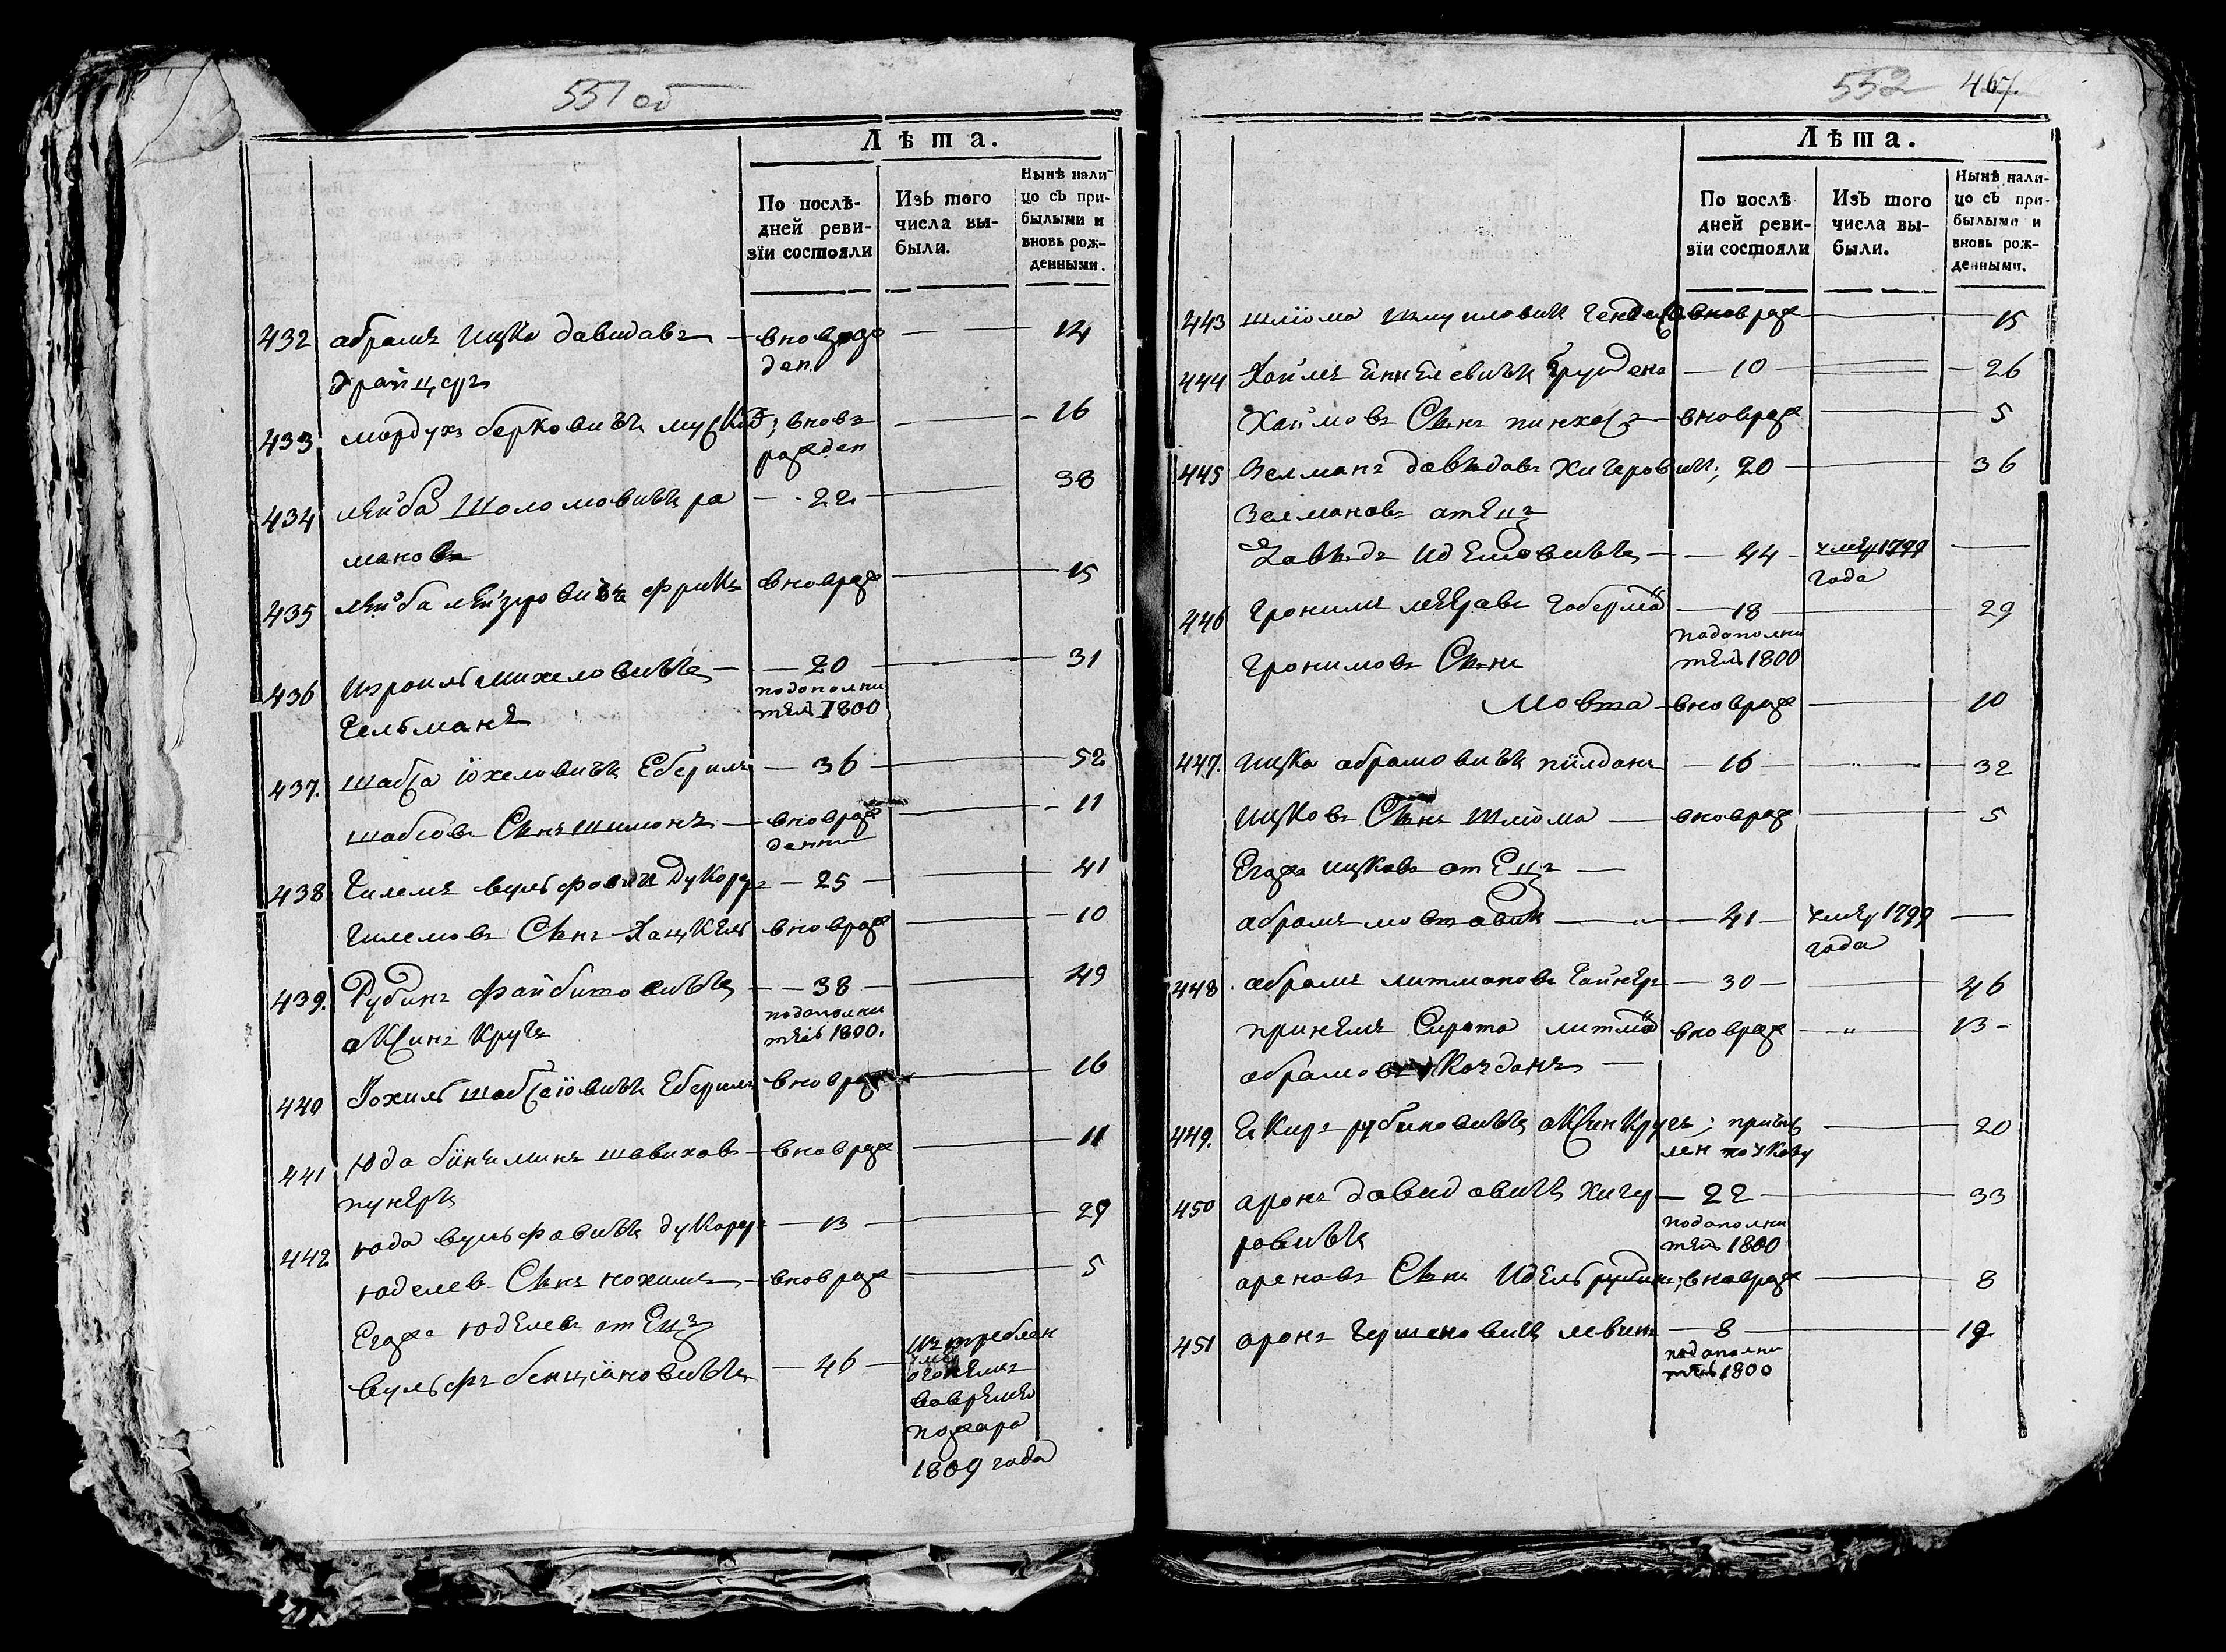 551 об
Лѣта.
По послѣ-
дней реви-
зїи состояли
Изъ того
числа вы-
были.
Нынѣ нали-
цо съ при-
былыми и
вновь рож-
денными.
432 абрамъ ицко давидавъ — вноврож — 14
ден
433 мордухъ берковичъ ; вновъ — 16
рожден
434 лейба шоломовичъ ро — 22 — 38
мановъ
435 лейба лейзировичъ фрикъ вноврож — 15
436 израиль михеловичъ — 20 — 31
подополни
тель 1800
гельманъ
437. шабса іохеловичъ Еберилъ — 36 — 52
шабсовъ Сынъ шимонъ — вноврож — 11
денни
438 гилемъ вульфовичъ дукоръ — 25 — 41
гилемовъ Сынъ Хацкель вноврож — 10
439. Рубинъ файбишовичъ — 38 — 49
подополни
тель 1800.
аксинкругъ
440 Іохиль шабсеіовичъ Еберилъ вноврож — 16
441 Юда биниминъ шавиховъ — вноврож — 11
пунеръ
442 юда вульфовичъ дукоръ — 13 — 29
юделевъ Сынъ нохимъ — вноврож — 5
Егожъ юделевъ отецъ
вульфъ бенціановичъ — 46 — изтреблен
огнемъ
вовремя
пожара
1809 года
552 467.
Лѣта.
По послѣ
дней реви-
зїи состояли
Изъ того
числа вы-
были.
Нынѣ нали-
цо съ при-
былыми и
вновь рож-
денными.
443 шліома шмуиловичъ вноврож — 15
444 Хаимъ Енкелевичъ груденъ — 10 — 26
Хаимовъ Сынъ пинхасъ — вноврож — 5
445 Зелманъ давидавъ хигеровичъ; 20 — 36
Зелмановъ отецъ
Давидъ иделовичъ — 44 — умеръ 1799
года
446 гронимъ гоберма — 18 — 29
подополни
тель 1800
гронимовъ Сынъ
Мовта — вноврож — 10
447. ицко абрамовичъ пилданъ — 16 — 32
ицковъ Сынъ шлиома — вноврож — 5
Егожъ ицковъ отецъ —
абрамъ мовтовичъ — 41 — умеръ 1799
года
448. абрамъ литмановъ гайнеръ — 30 — 46
принемъ Сирота литма вноврож — 13 -
абрамовъ Кочданъ —
449. Екиръ рубиновичъ аксинкругъ; причис — 20
лен поуказу
450 аронъ давидовичъ хиге — 22 — 33
подополни
тель 1800
ровичъ
ароновъ Сынъ идель рубинъ; вноврож — 8
451 аронъ гершеновичъ левинъ — 8 — 19
подополни
тель 1800